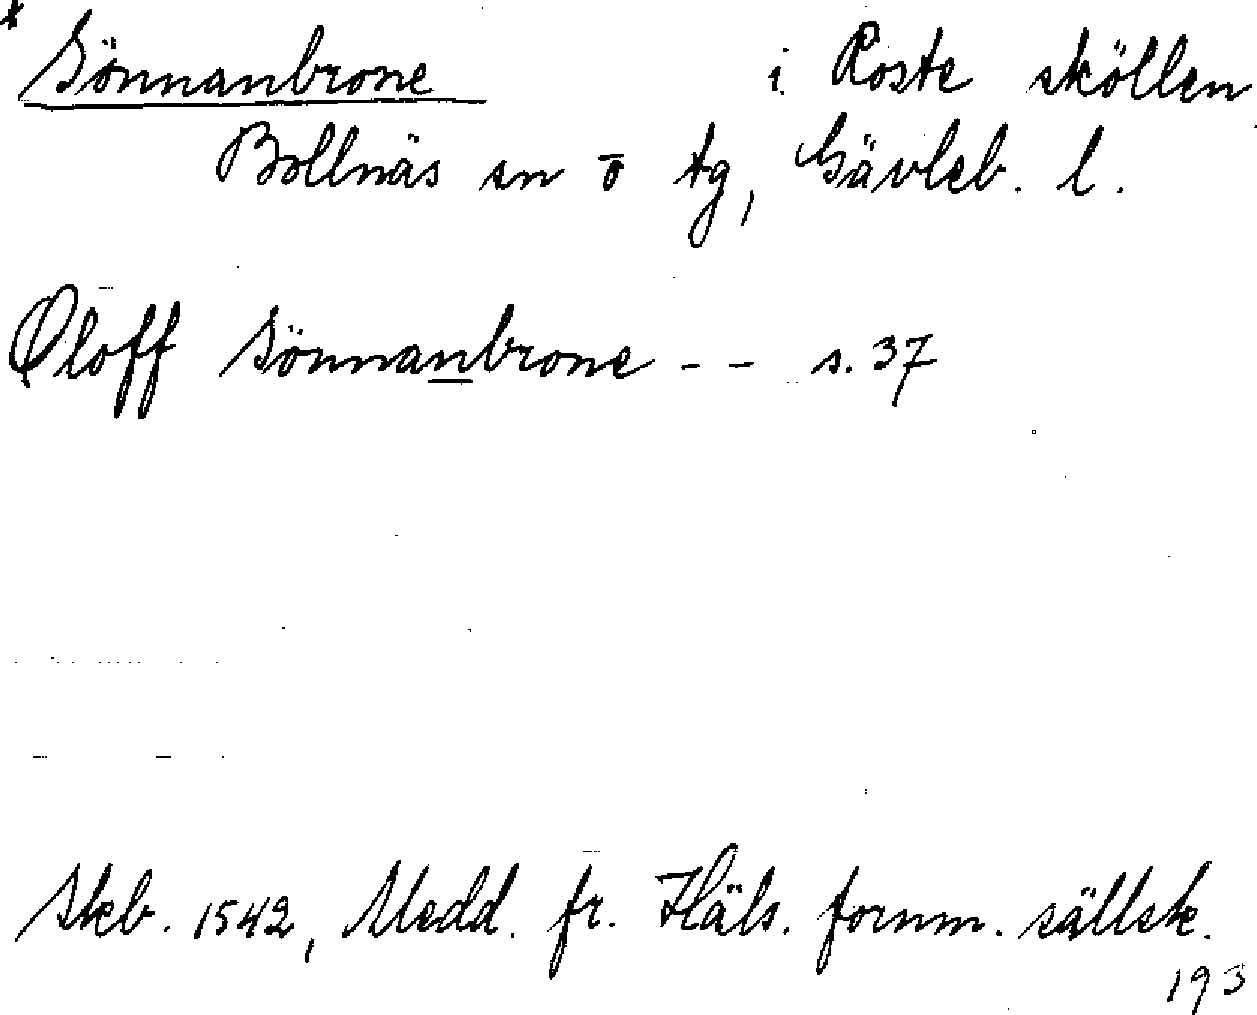 * Sönnanbrone i Roste sköllen
Bollnäs sn o tg, Gävleb. l.
Oloff Sönnanbrone - - s. 37
Skb. 1542, Medd. fr. Häls. fornm. sällsk.
193